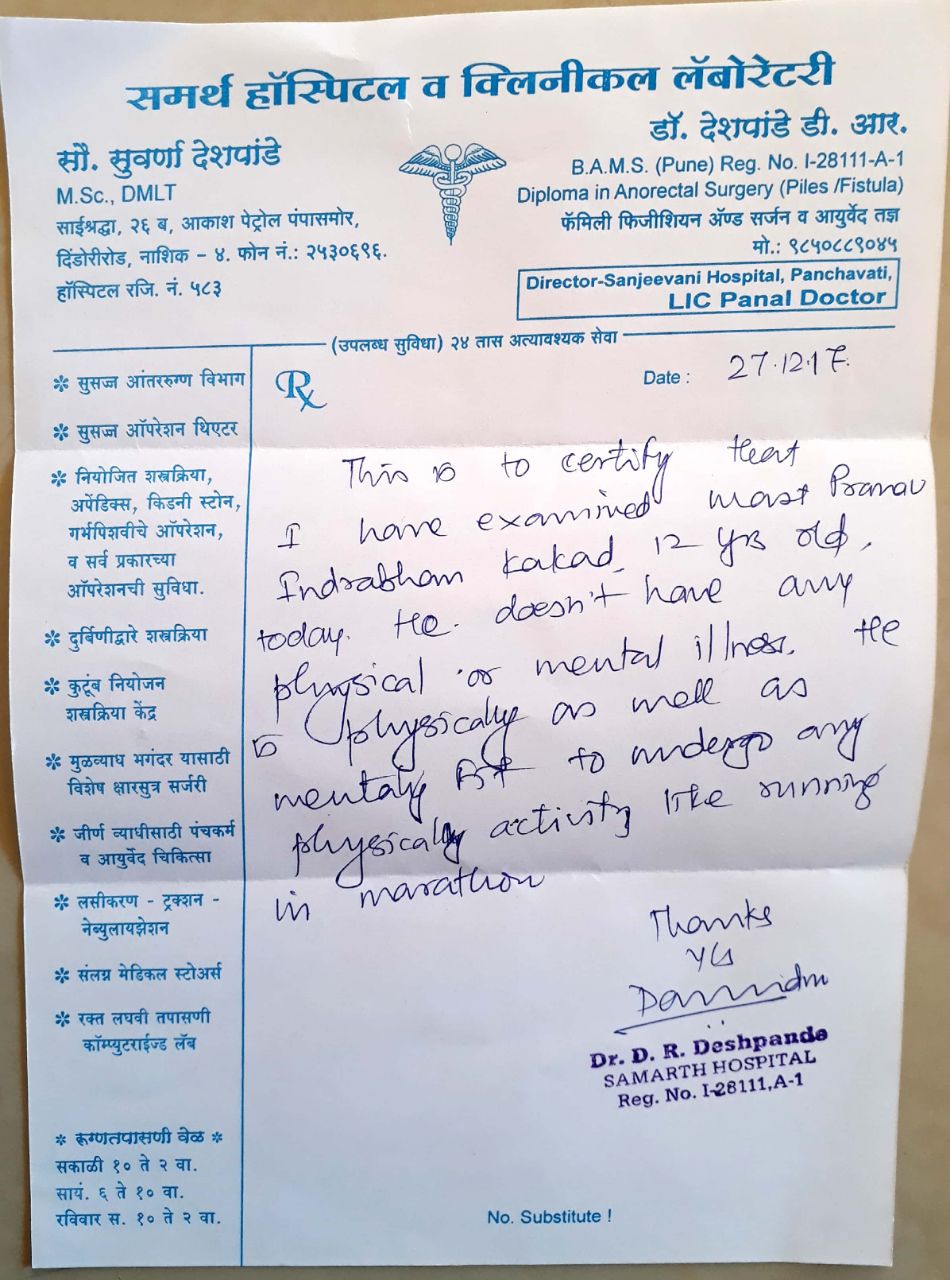 समर्थ हॉस्पिटल व क्लिनीकल लॅबोरेटरी
सौ. सुवर्णा देशपांडे
M.Sc., DMLT
साईश्रद्धा, २६ ब, आकाश पेट्रोल पंपासमोर,
दिंडोरीरोड, नाशिक – ४. फोन नं.: २५३०६९६.
हॉस्पिटल रजि. नं. ५८३
डॉ. देशपांडे डी. आर.
B.A.M.S. (Pune) Reg. No. I-28111-A-1
Diploma in Anorectal Surgery (Piles /Fistula)
फॅमिली फिजीशियन ॲण्ड सर्जन व आयुर्वेद तज्ञ
मो.: ९८५०८८९०४५
Director-Sanjeevani Hospital, Panchavati,
LIC Panal Doctor
(उपलब्ध सुविधा) २४ तास अत्यावश्यक सेवा
* सुसज्ज आंतररुग्ण विभाग
* सुसज्ज ऑपरेशन थिएटर
* नियोजित शस्त्रक्रिया,
अपेंडिक्स, किडनी स्टोन,
गर्भपिशवीचे ऑपरेशन,
व सर्व प्रकारच्या
ऑपरेशनची सुविधा.
* दुर्बिणीद्वारे शस्त्रक्रिया
* कुटूंब नियोजन
शस्त्रक्रिया केंद्र
* मुळव्याध भगंदर यासाठी
विशेष क्षारसुत्र सर्जरी
* जीर्ण व्याधीसाठी पंचकर्म
व आयुर्वेद चिकित्सा
* लसीकरण - ट्रक्शन -
नेब्युलायझेशन
* संलग्न मेडिकल स्टोअर्स
* रक्त लघवी तपासणी
कॉम्प्युटराईज्ड लॅब
* रूग्णतपासणी वेळ *
सकाळी १० ते २ वा.
सायं. ६ ते १० वा.
रविवार स. १० ते २ वा.
Rx
Date : 27.12.17.
This is to certify that
I have examined mast Pranav
Indrabham Kakad, 12 yrs old,
today. He. doesn't have any
physical or mental illness. He
is physically as well as
mentaly fit to undergo any
physically activity like running
in marathon
Thanks
Dr. D. R. Deshpande
SAMARTH HOSPITAL
Reg. No. I-28111,A-1
No. Substitute !